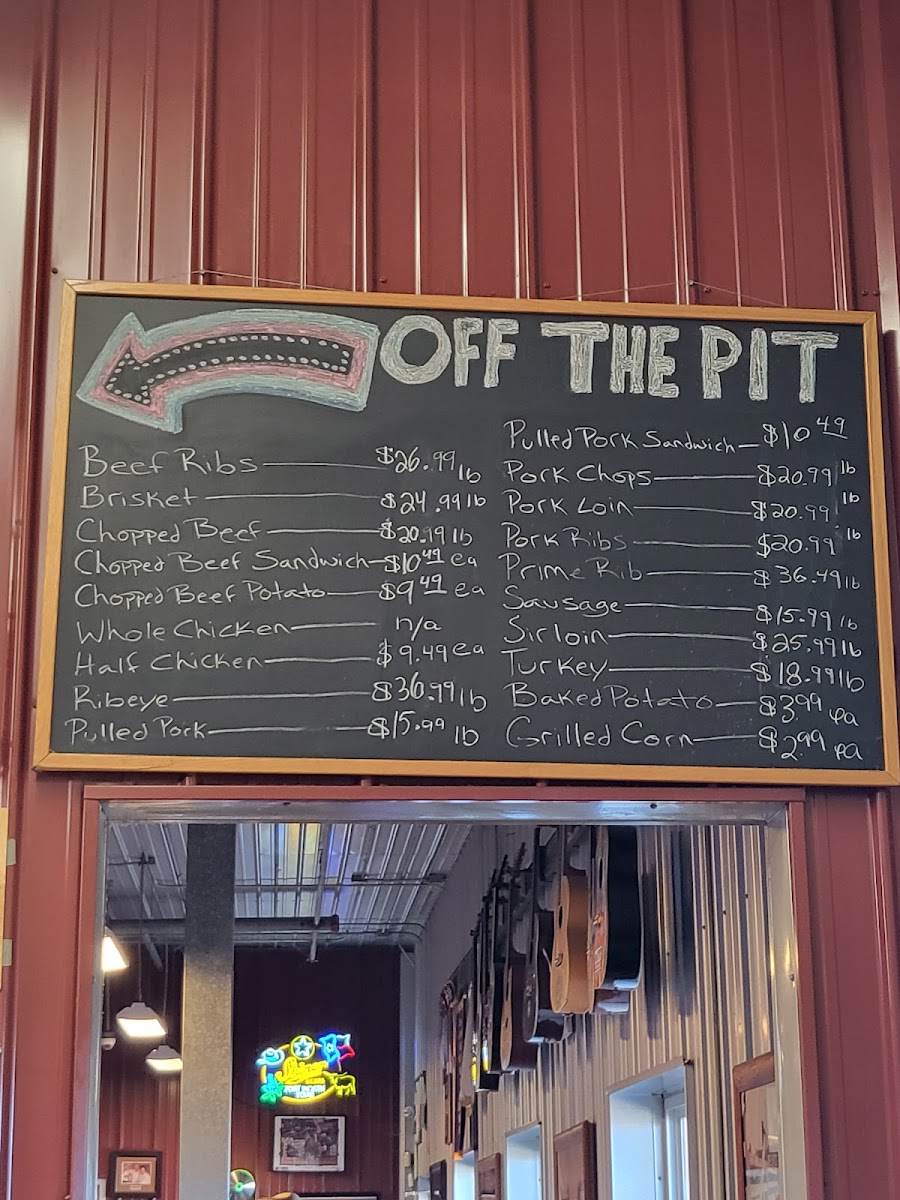 OFF THE PIT
Beef Ribs $26.99 lb
Brisket $24.99 lb
Chopped Beef $20.99 lb
Chopped Beef Sandwich $10 49 ea
Chopped Beef Potato $9 49 ea
Whole Chicken n/a
Half Chicken $9.49 ea
Ribeye $36.99 lb
Pulled Pork $15.99 lb
Pulled Pork Sandwich $10 49
Pork Chops $20.99 lb
Pork Loin $20.99 lb
Pork Ribs $20.99 lb
Prime Rib $36.49 lb
Sausage $15.99 lb
Sirloin $25.99 lb
Turkey $18.99 lb
Baked Potato $3.99 ea
Grilled Corn $2.99 ea
Shiner